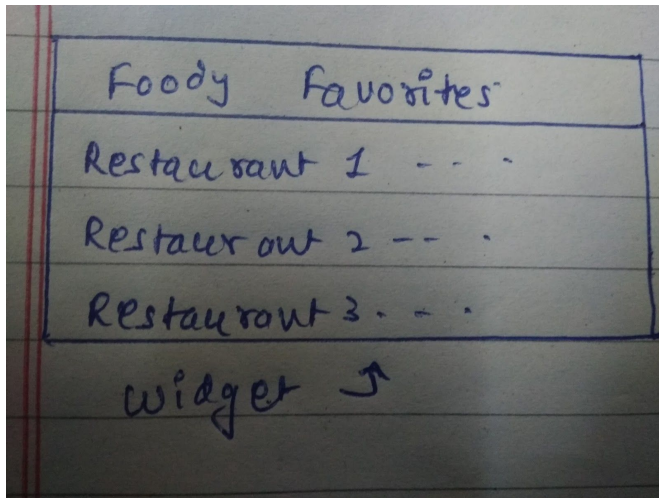 Foody Favorites
Restaurant 1 - - -
Restaurant 2 -- -
Restaurant 3. - -
widget ↑